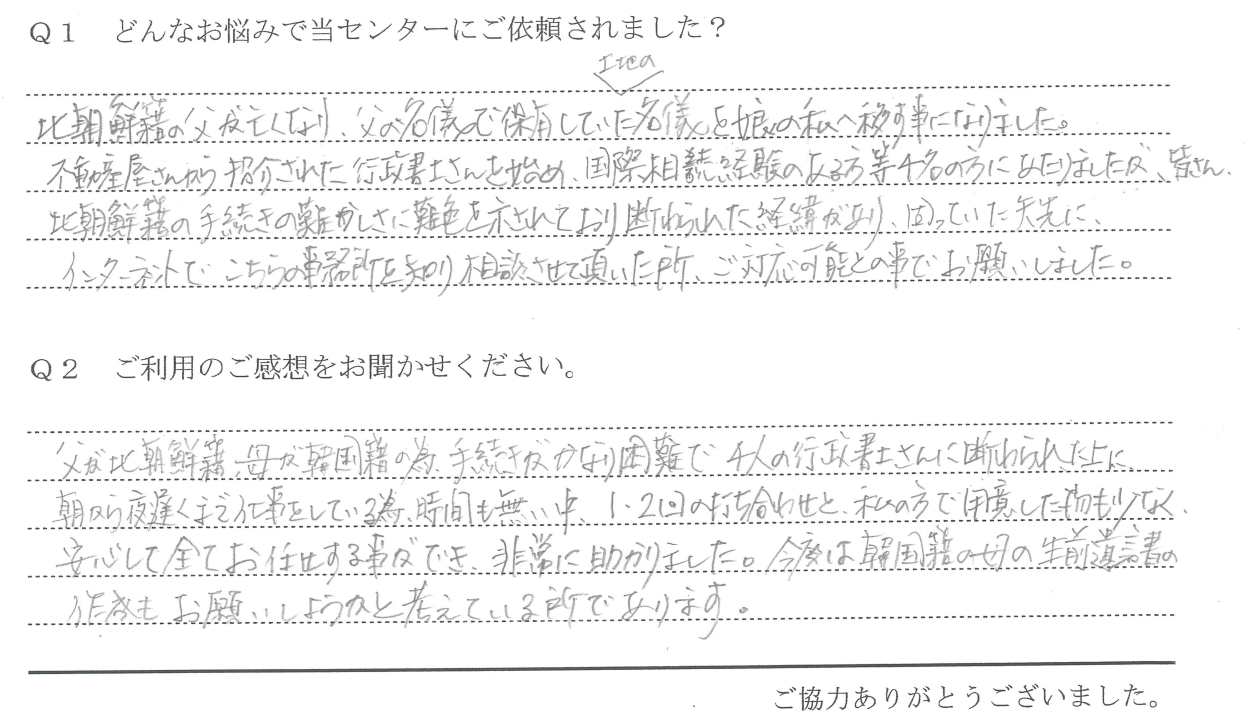 Q1 どんなお悩みで当センターにご依頼されました?
土地の
北朝鮮籍の父が亡くなり、父の名儀で保有していた名儀を娘の私へ移す事になりました。
不動産屋さんから紹介された行政書士さんを始め、国際相続経験のある方等4名の方にあたりましたが、皆さん、
北朝鮮籍の手続きの難かしさに難色を示されており断わられた経緯があり、困っていた矢先に、
インターネットでこちらの事務所を知り相談させて頂いた所、ご対応可能との事でお願いしました。
Q2 ご利用のご感想をお聞かせください。
父が北朝鮮籍、母が韓国籍の為、手続きがかなり困難で4人の行政書士さんに断わられた上に、
朝から夜遅くまで仕事をしている為、時間も無い中、1・2回の打ち合わせと、私の方で用意した物も少なく、
安心して全てお任せする事ができ、非常に助かりました。今度は韓国籍の母の生前遺言書の
作成もお願いしようかと考えている所であります。
ご協力ありがとうございました。